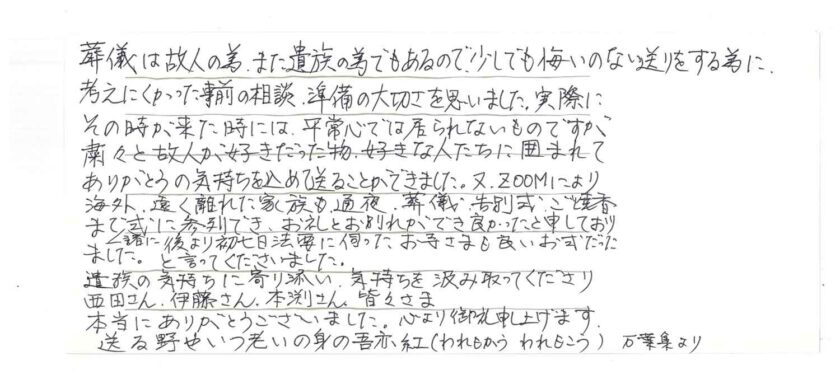 葬儀は故人の為、また遺族の為でもあるので、少しでも悔いのない送りをする為に、
考えにくかった事前の相談、準備の大切さを思いました。実際に
その時が来た時には、平常心では居られないものですが
粛々と故人が好きだった物、好きな人たちに囲まれて
ありがとうの気持ちを込めて送ることができました。又、ZOOMにより
海外、遠く離れた家族も通夜、葬儀、告別式、ご焼香
まで式に参列でき、お礼とお別れができ良かったと申しており
ました。一諸に後より初七日法要に伺ったお寺さまも良いお式だった
と言ってくださいました。
遺族の気持ちに寄り添い、気持ちを汲み取ってくださり
西田さん、伊藤さん、本渕さん、皆々さま
本当にありがとうございました。心より御礼申し上げます。
送る野やいつ老いの身の吾亦紅(われもかう われもこう) 万葉集より